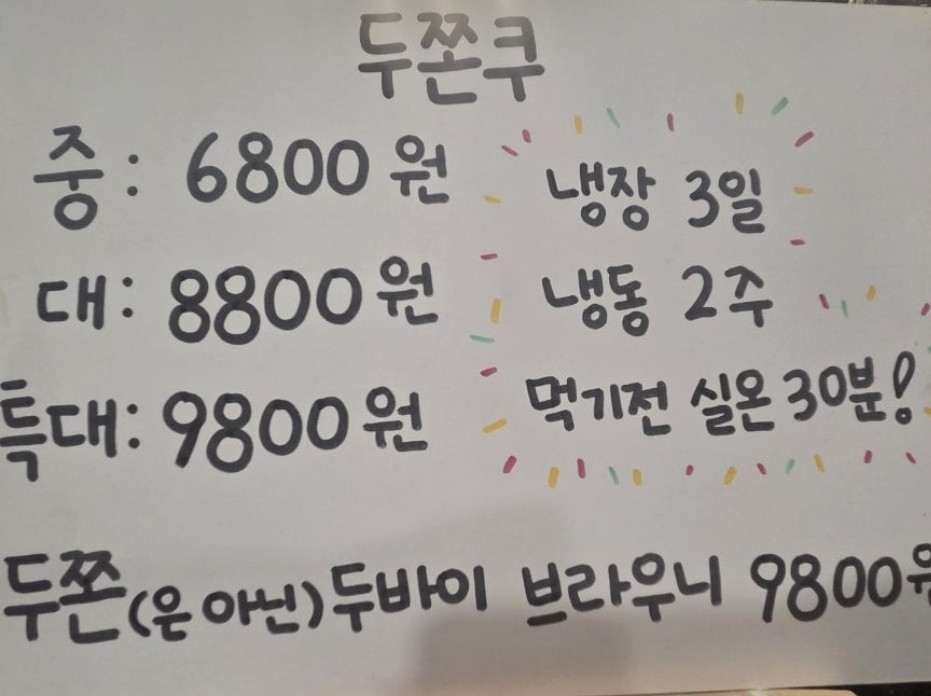 두쫀쿠
중: 6800원
대: 8800원
특대: 9800원
냉장 3일
냉동 2주
먹기전 실온 30분!
두쫀(은 아닌)두바이 브라우니 9800원